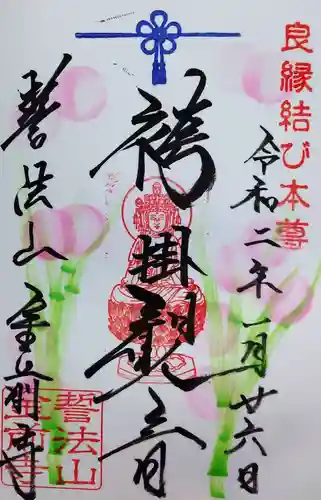 良縁結び本尊
令和二年一月廿六日
袴掛観音
誓法山金前寺
誓法山
金前寺